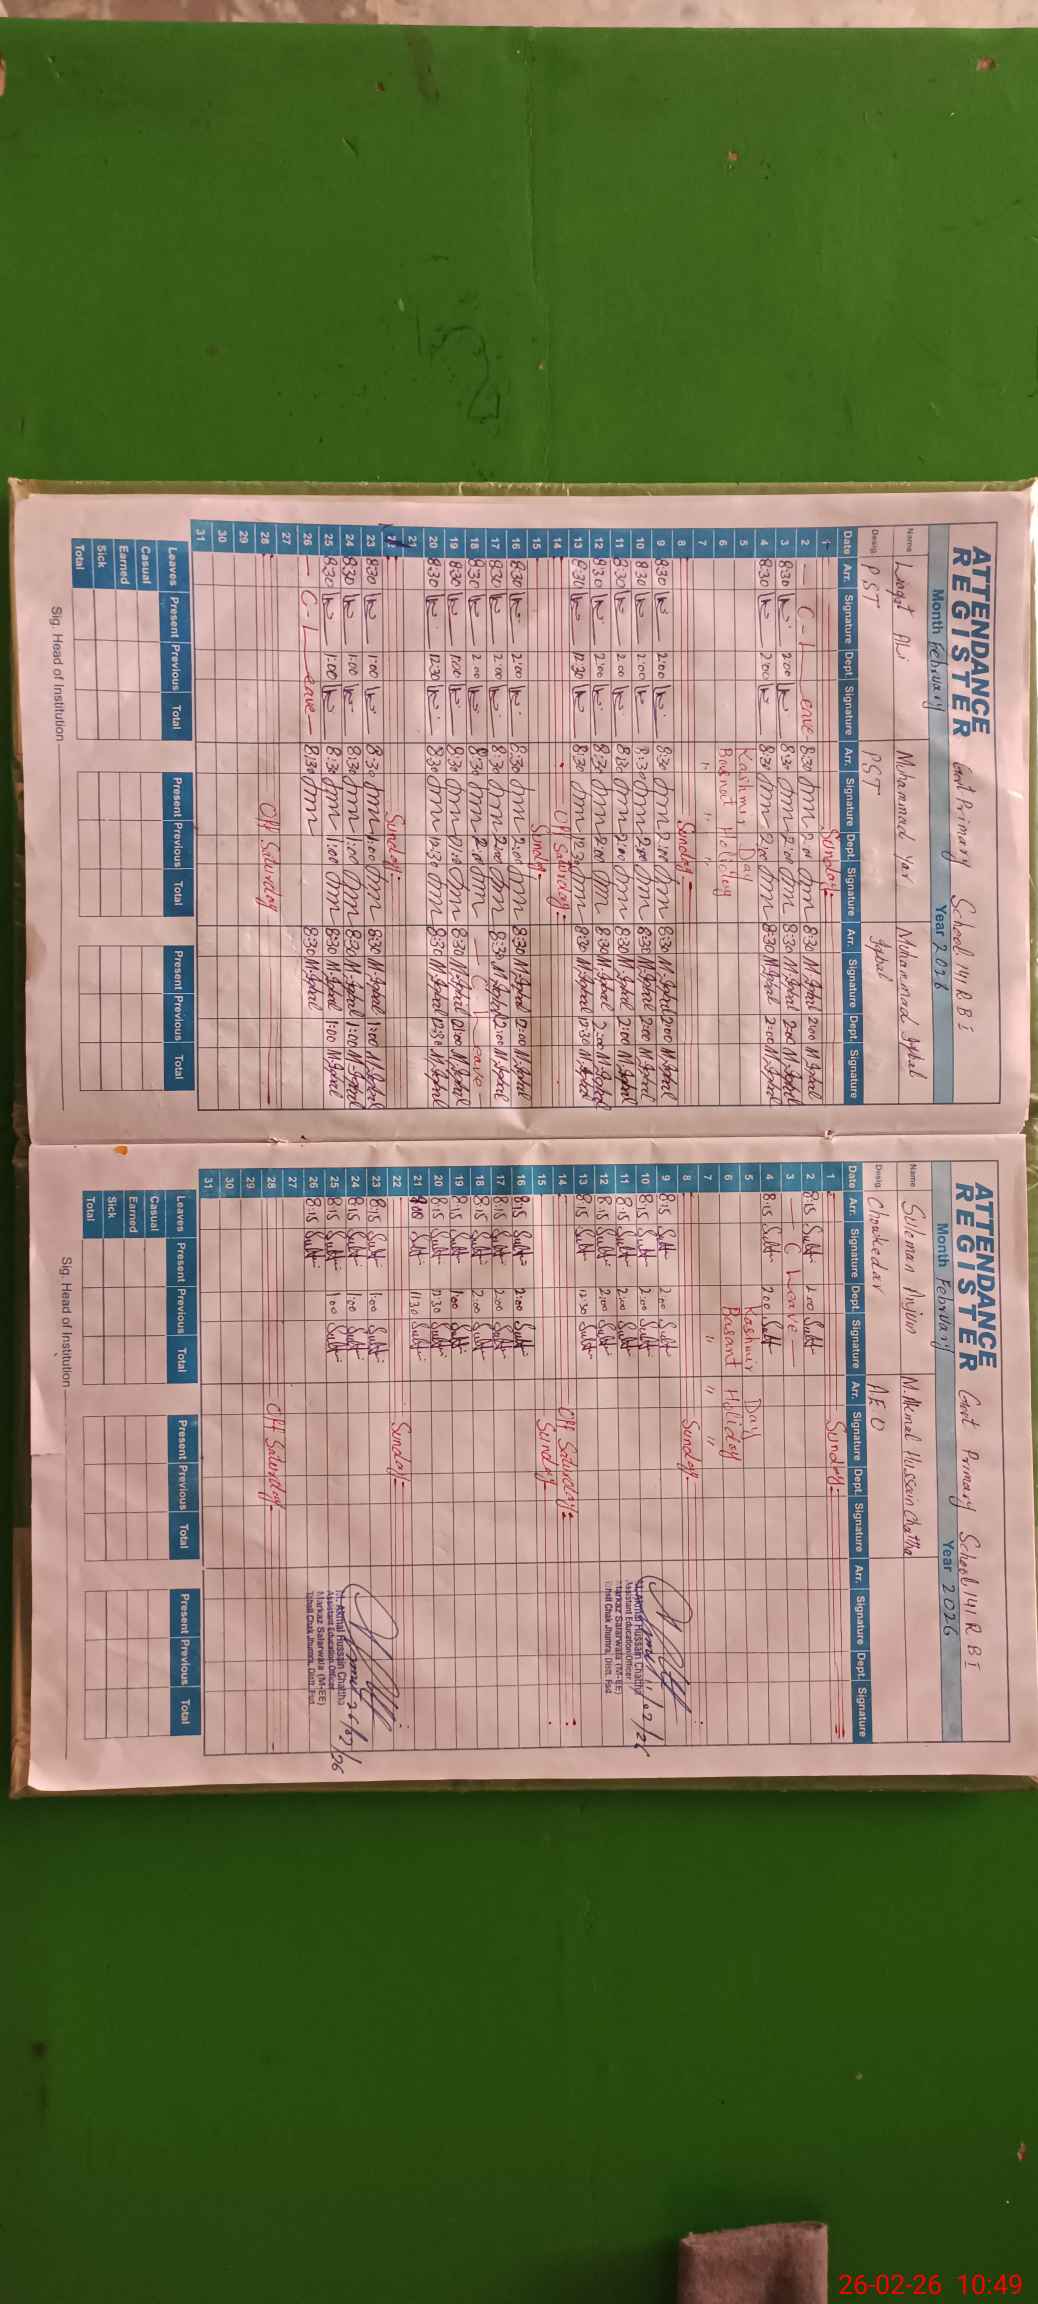 ATTENDANCE
REGISTER
Govt Primary School 141 R B I
Month February Year 2026
Name Liaqat Ali Muhammad Yar Muhammad Iqbal
Desig PST PST Iqbal
Date Arr. Signature Dept. Signature Arr. Signature Dept. Signature Arr. Signature Dept. Signature
1 Sunday
2 C-Leave 8:30 2:00 8:30 M.Iqbal 2:00 M.Iqbal
3 8:30 2:00 8:30 2:00 8:30 M.Iqbal 2:00 M.Iqbal
4 8:30 2:00 8:30 2:00 8:30 M.Iqbal 2:00 M.Iqbal
5 Kashmir Day
6 Basnat Holiday
7 " " "
8 Sunday
9 8:30 2:00 8:30 2:00 8:30 M.Iqbal 2:00 M.Iqbal
10 8:30 2:00 8:30 2:00 8:30 M.Iqbal 2:00 M.Iqbal
11 8:30 2:00 8:30 2:00 8:30 M.Iqbal 2:00 M.Iqbal
12 8:30 2:00 8:30 2:00 8:30 M.Iqbal 2:00 M.Iqbal
13 8:30 12:30 8:30 12:30 8:30 M.Iqbal 12:30 M.Iqbal
14 Off Saturday
15 Sunday
16 8:30 2:00 8:30 2:00 8:30 M.Iqbal 2:00 M.Iqbal
17 8:30 2:00 8:30 2:00 8:30 M.Iqbal 2:00 M.Iqbal
18 8:30 2:00 8:30 2:00 C Leave
19 8:30 1:00 8:30 8:30 M.Iqbal M.Iqbal
20 8:30 12:30 8:30 12:30 8:30 M.Iqbal 12:30 M.Iqbal
21
Sunday
23 8:30 1:00 8:30 1:00 8:30 M.Iqbal 1:00 M.Iqbal
24 8:30 1:00 8:30 1:00 8:30 M.Iqbal 1:00 M.Iqbal
25 8:30 1:00 8:30 1:00 8:30 M.Iqbal 1:00 M.Iqbal
26 C-Leave 8:30 8:30 M.Iqbal
27
28 Off Saturday
29
30
31
Leaves Present Previous Total Present Previous Total Present Previous Total
Casual
Earned
Sick
Total
Sig. Head of Institution
ATTENDANCE
REGISTER
Govt Primary School 141 R B I
Month February Year 2026
Name Suleman Anjum M.Akmal Hussain Chatha
Desig Chowkedar AEO
Date Arr. Signature Dept. Signature Arr. Signature Dept. Signature Arr. Signature Dept. Signature
1 Sunday
2 8:15 2:00
3 C Leave
4 8:15 2:00
5 Kashmir Day
6 Basant Holiday
7 " " "
8 Sunday
9 8:15 2:00
10 8:15 2:00
11 8:15 2:00
12 8:15 2:00
13 8:15 12:30
11/02/26
M. Akmal Hussain Chattha
Assistant Education Officer
Markaz Safarwala (M-EE)
Tehsil Chak Jhumra, Distt. Fsd
14 Off Saturday
15 Sunday
16 8:15 2:00
17 8:15 2:00
18 8:15 2:00
19 8:15 1:00
20 8:15 12:30
21 11:30
22 Sunday
23 8:15 1:00
24 8:15 1:00
25 8:15 1:00
26 8:15
26/02/26
M. Akmal Hussain Chattha
Assistant Education Officer
Markaz Safarwala (M-EE)
Tehsil Chak Jhumra, Distt. Fsd
27
28 Off Saturday
29
30
31
Leaves Present Previous Total Present Previous Total Present Previous Total
Casual
Earned
Sick
Total
Sig. Head of Institution
26-02-26 10:49